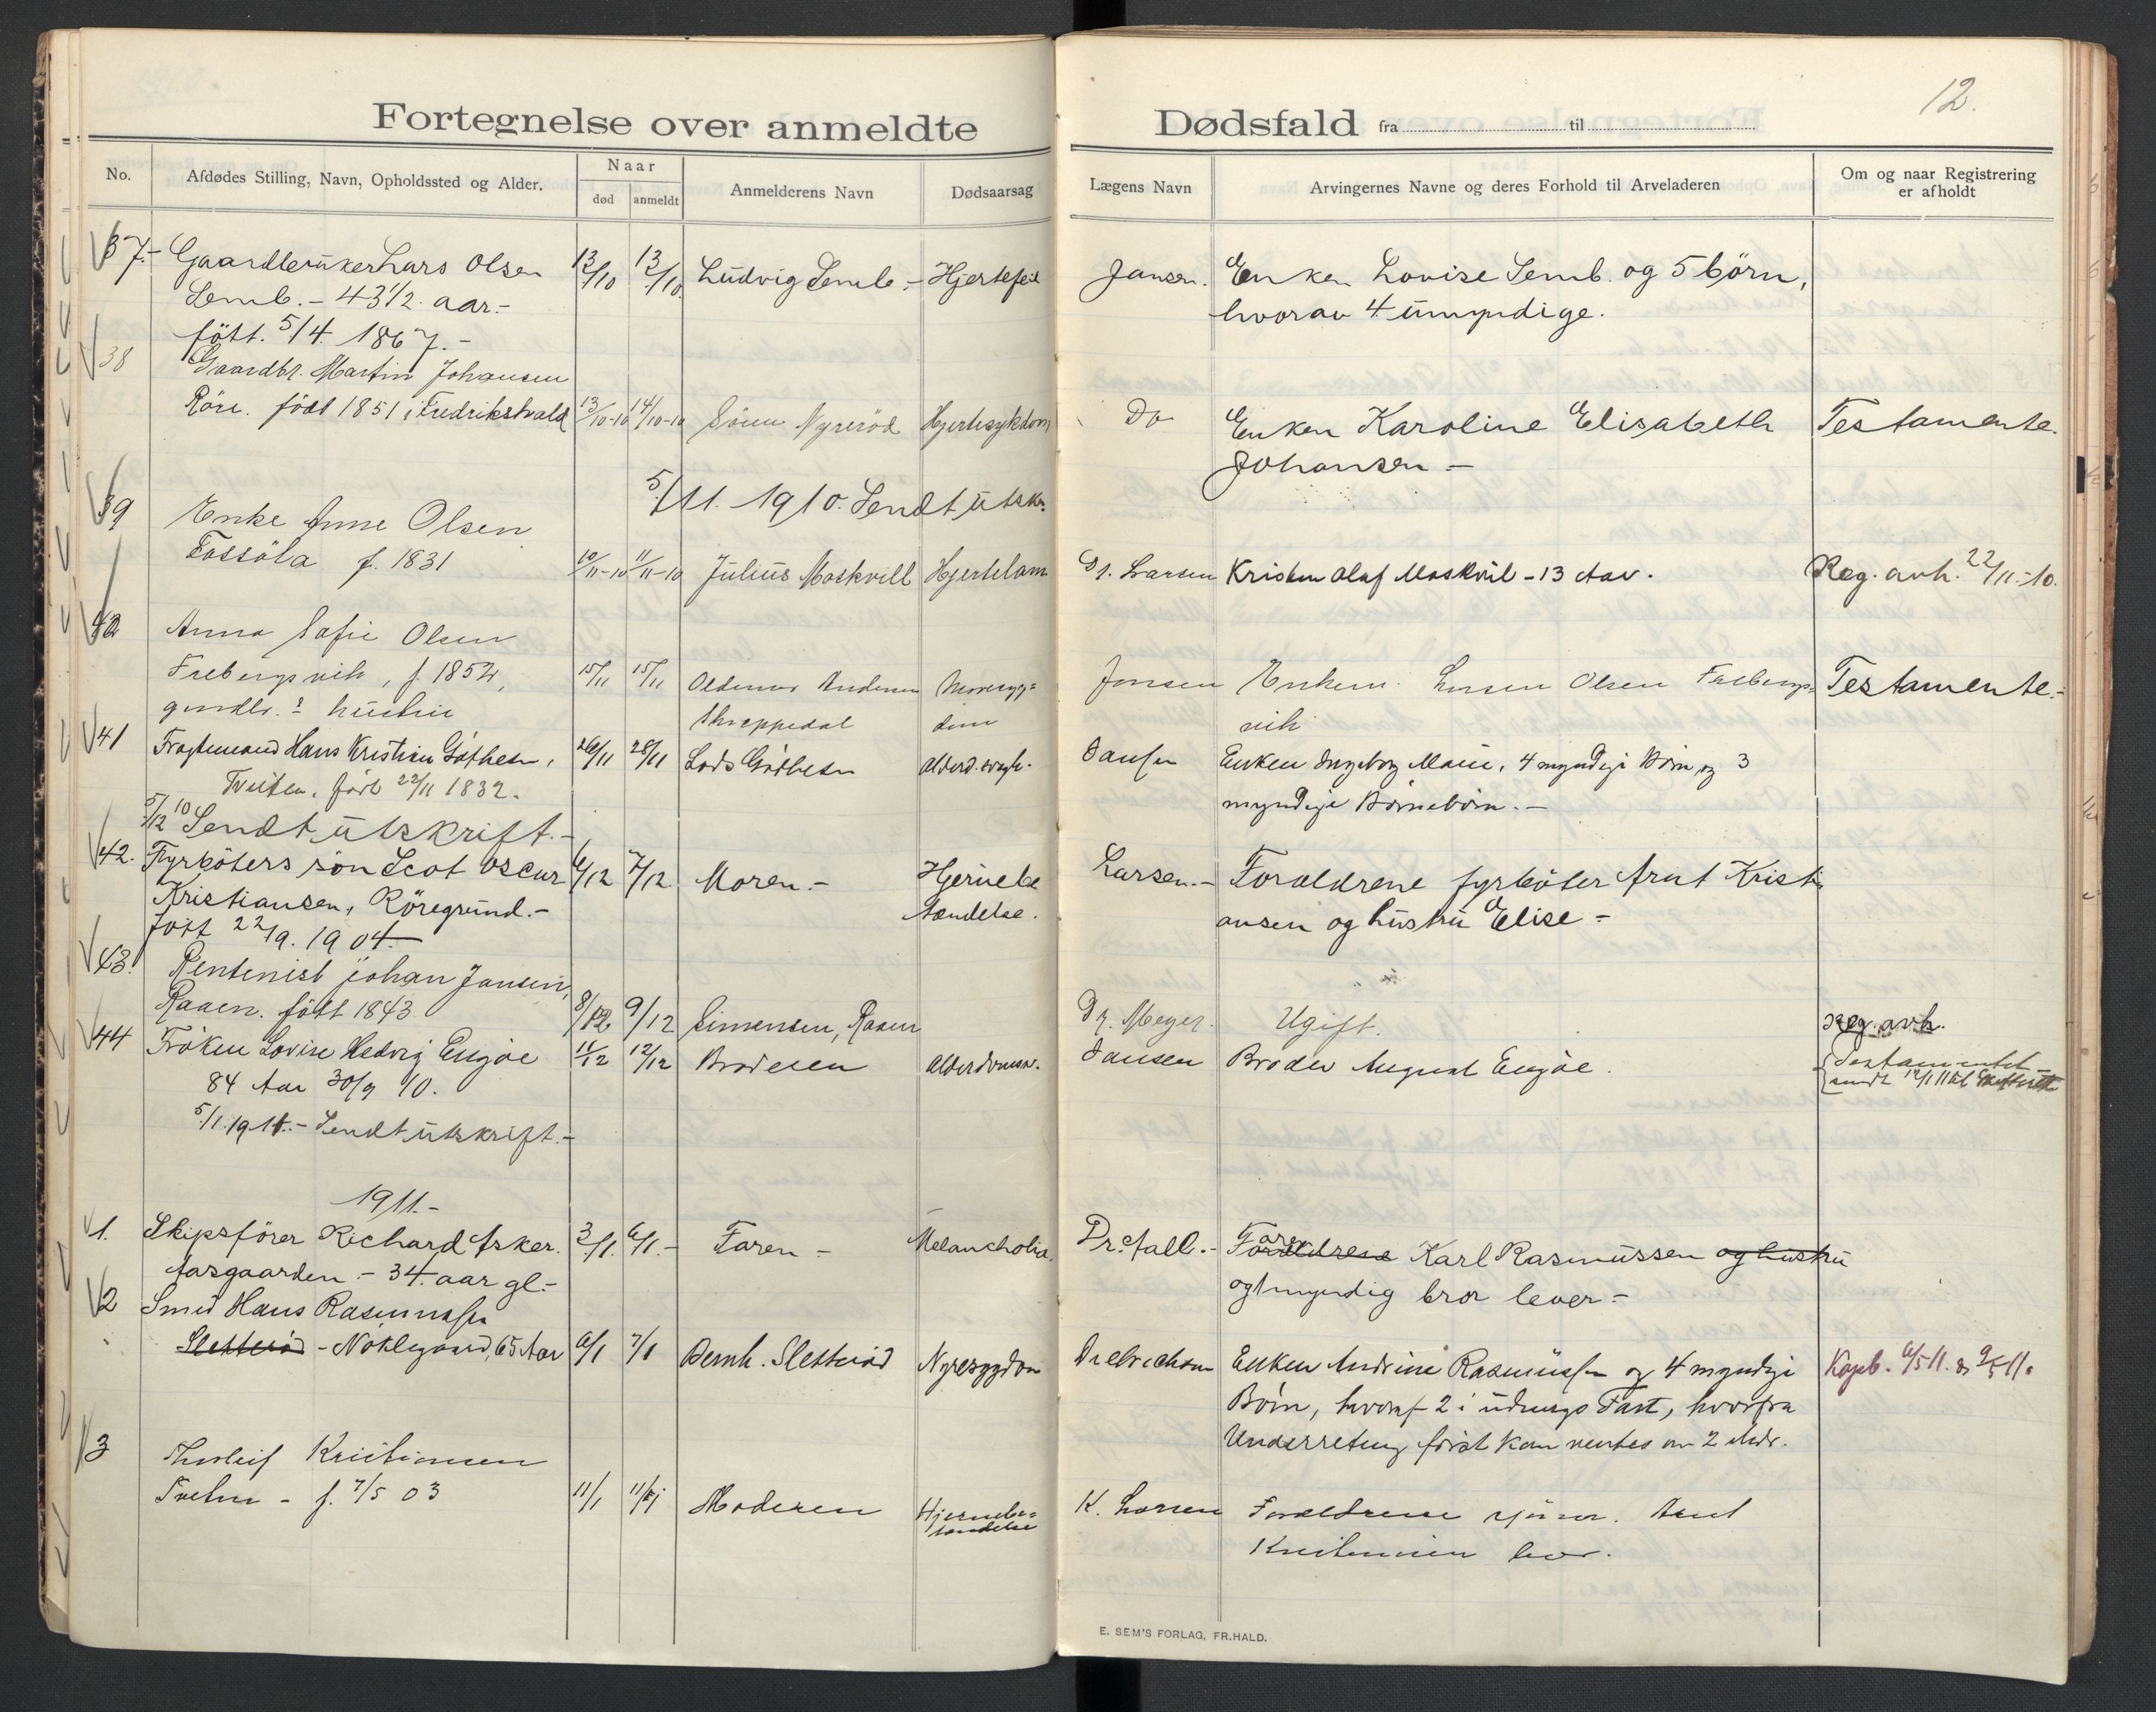 12.
Fortegnelse over anmeldte Dødsfald fra til
No. Afdødes Stilling, Navn, Opholdssted og Alder. Naar død anmeldt Anmelderens Navn Dødsaarsag Lægens Navn Arvingernes Navne og deres Forhold til Arveladeren Om og naar Registrering er afholdt
37.- Gaardbruker Lars Olsen 12/10 13/10. Ludvig Semb.- Hjertefeil Jansen. Enken Lovise Semb. og 5 børn,
Semb.- 43 1/2. aar.- hvorav 4 umyndige.
født. 5/4. 1867.-
38 Gaardbr. Martin Johansen
Röre. født 1851 i Fredrikshald 13/10-10 14/10-10 Nyreröd Hjertesykdom Do Enken Karoline Elisabeth Testamente.
Johansen -
5/11. 1910. Sendt utskr.
39 Enke Anne Olsen
Fossöla f. 1831 10/11-10 11/11-10 Julius Moskvill Hjertelam Dr. Larsen Kristen Olaf Moskvil - 13 Aar. Reg. avh. 22/11-10.
40 Anna Sofie Olsen
Frebergsvik, f. 1852, 15/11 15/11 Andersen Jansen Olsen Frebergs- Testamente.-
hustru Skreppedal vik
41 Fragtemand Hans Kristian Gjøthesen, 26/11 28/11 Lods Gjøthesen Alderd.svagh. Jansen Enken Ingeborg Marie, 4 myndige Børn og 3
Tveiten. født 22/11 1832. myndige Børnebørn.-
5/12 10 Sendt utskrift.-
42. Fyrböters sön Scot Oscar 6/12 7/12 Moren.- Hjernebe Larsen.- Foraldrene fyrböter Arnt Kristi
Kristiansen, Röregrund.- tændelse. ansen og hustru Elise -
født 22/9. 1904.-
43. Rentenist Johan Jansen,
Raaen. født 1843 8/12 9/12 Simensen, Raaen Dr. Meyer. Ugift. Reg. avh.
44 Fröken Lovise Hedvig Engöe 11/12 12/12 Broderen Alderdomssv. Jansen Broder August Engöe. Testamentet
84 Aar 30/9 10. sendt 12/1 11 til Skifteret
5/1. 1911.- Sendt utskrift.-
1911.-
1. Skipsförer Richard Asker. 3/1. 6/1.- Faren - Melancholia. Dr. Fall.- Foraldrene aren Karl Rasmussen og hustru
Aasgaarden.- 34. aar gl.- og 1 myndig bror lever -
2 Smed Hans Rasmussen
Sletteröd - Nöklegaard, 65 Aar 6/1 7/1 Bernh. Sletteröd Nyresygdom Enken Andrine Rasmussen og 4 myndige Kapb. 6/5 11. & 9/5 11.
Børn, hvoraf 2 i udenrigs Fart, hvorfra
Underretning först kan ventes om 2 Mdr.
3 Thorleif Kristiansen
Tveten - f. 7/5 03 11/1 11/1 Moderen Hjernebe- K. Larsen Forældrene Arnt
tændelse Kristiansen lever.
E. SEM'S FORLAG, FR.HALD.